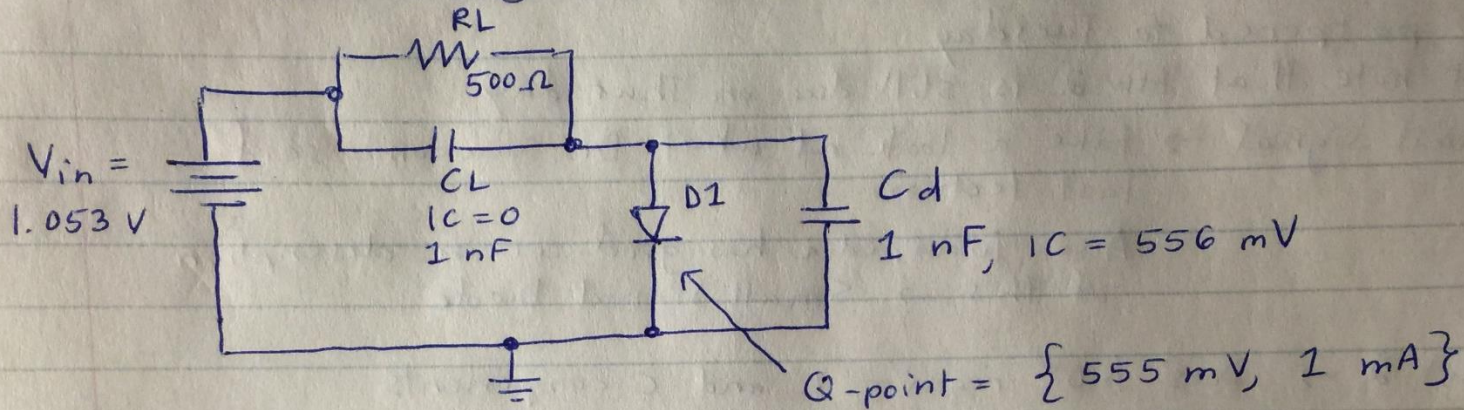 RL
500Ω
Vin =
1.053 V
CL
IC = 0
1 nF
D1
Cd
1 nF, IC = 556 mV
Q-point = { 555 mV, 1 mA }